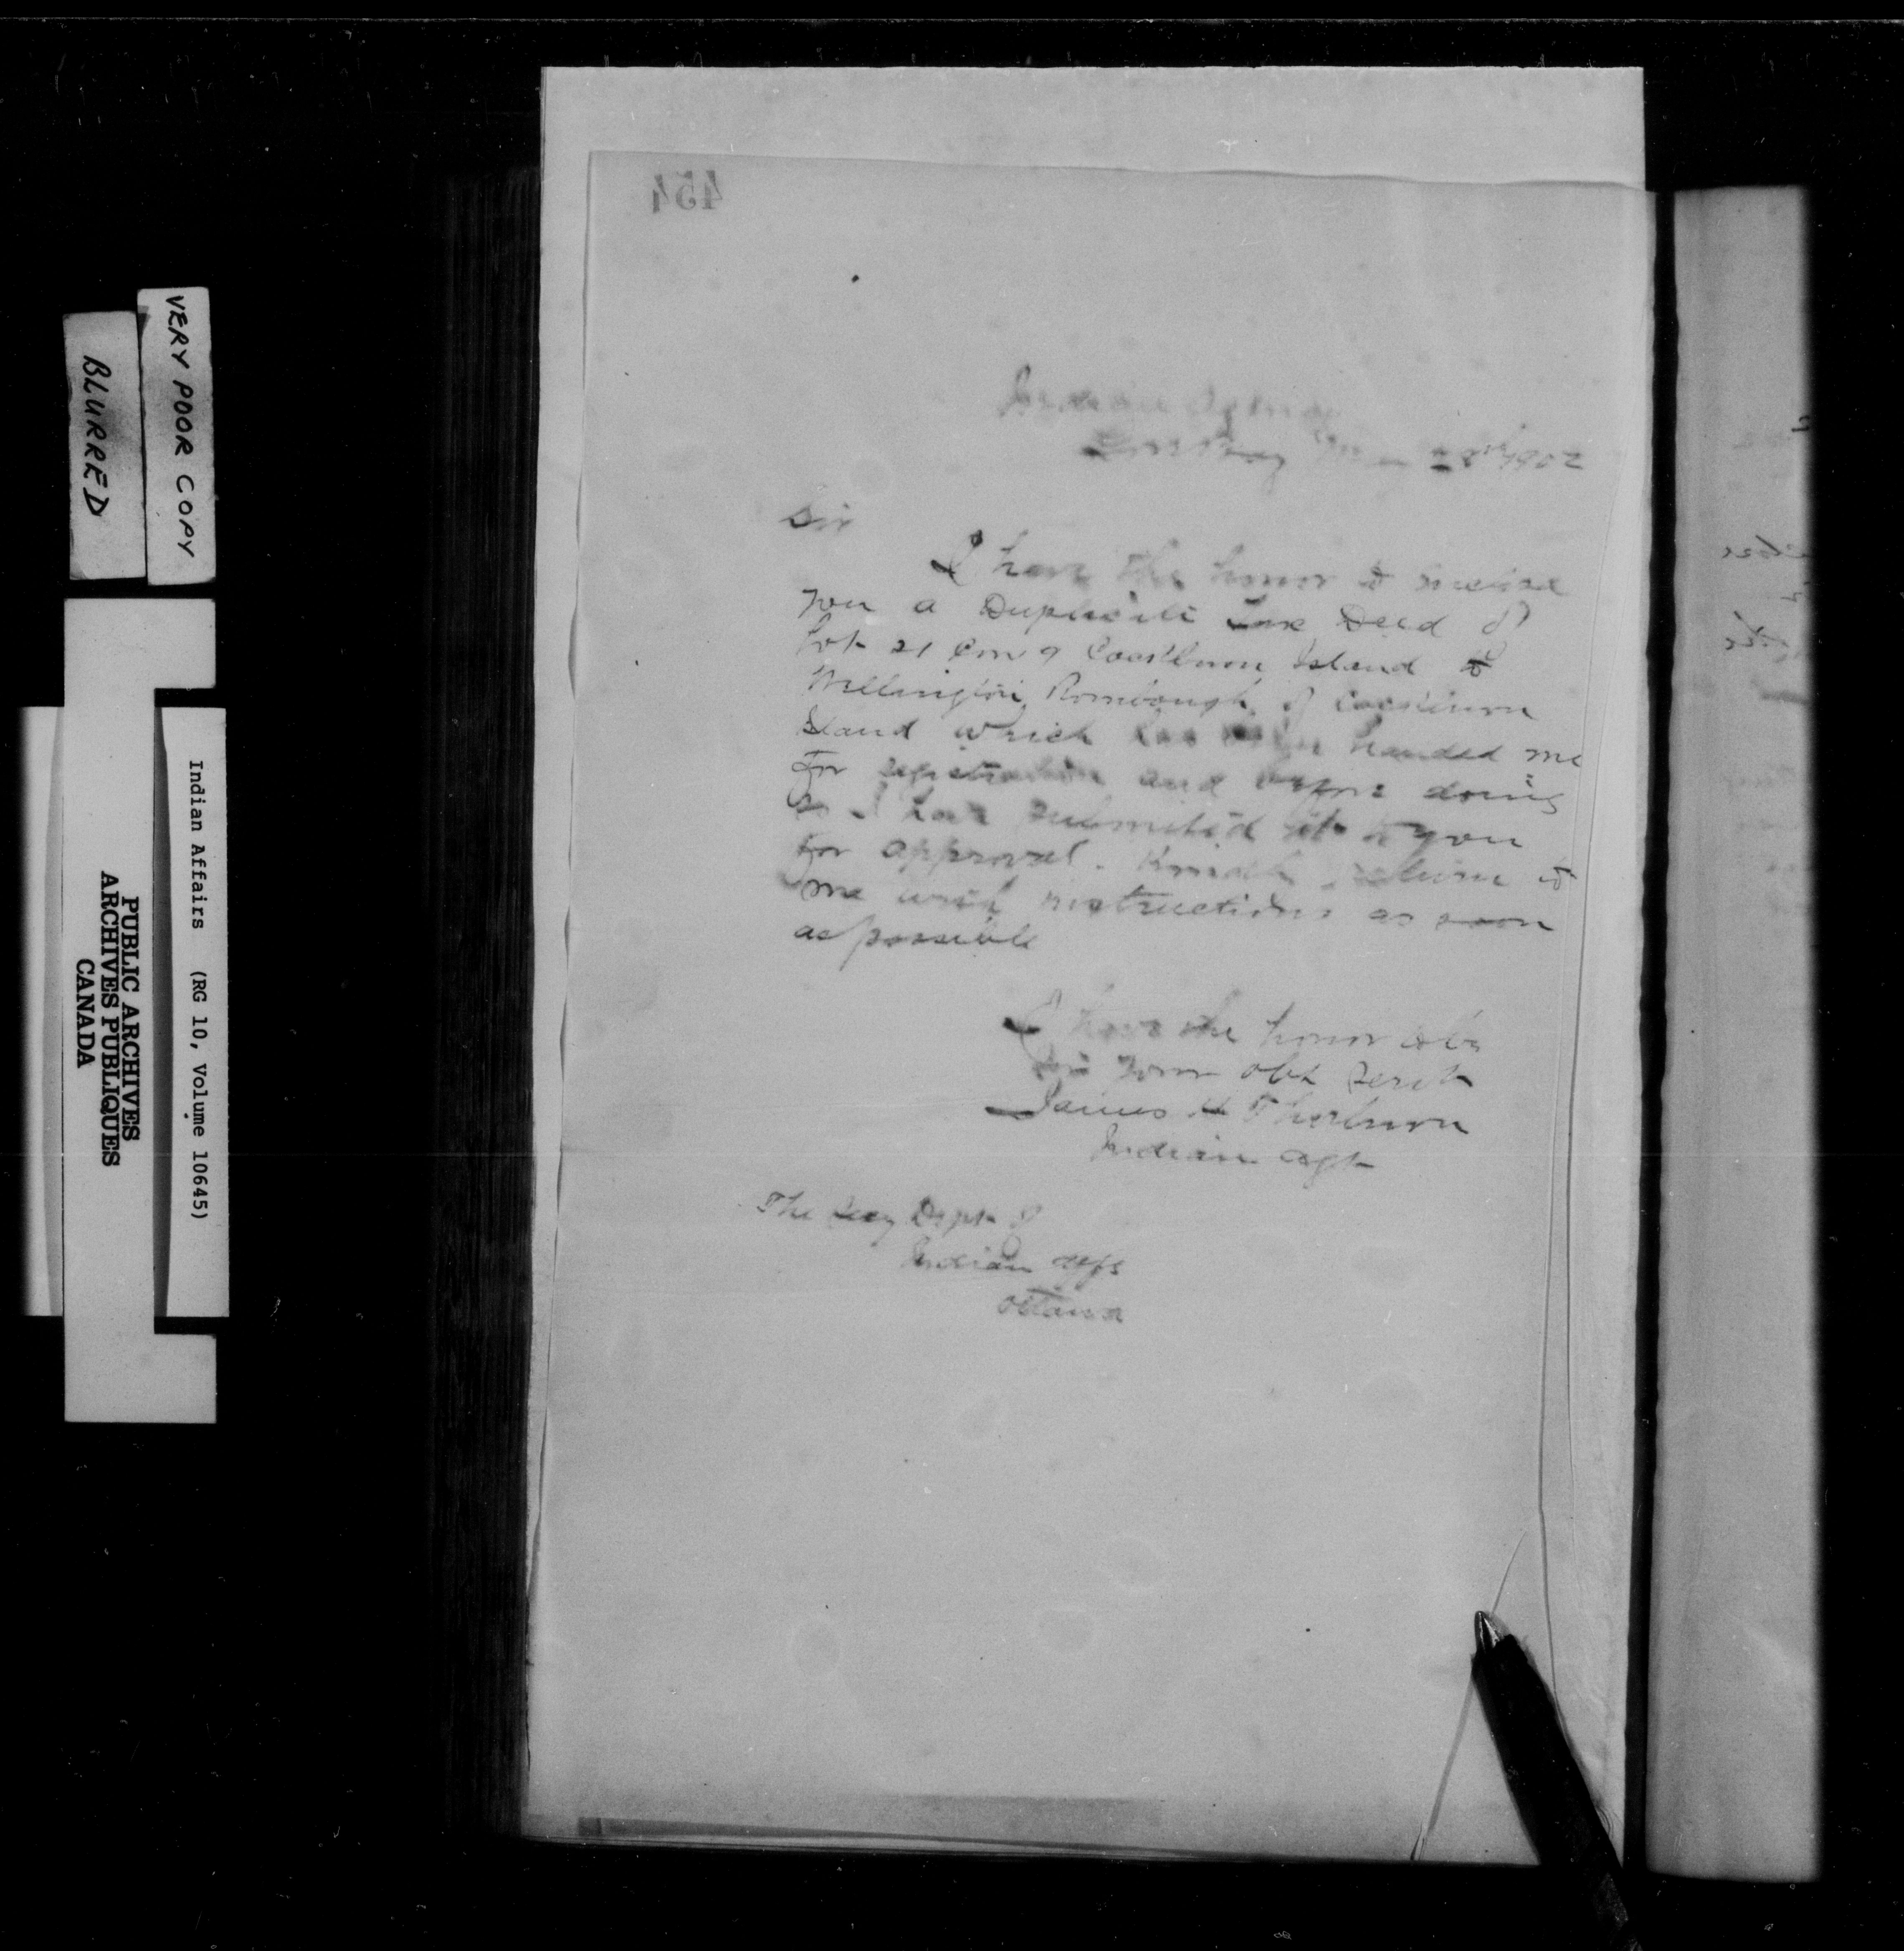 454
Indian Agency
Gore Bay May 28th 1902
Sir
I have the honor to enclose
you a Duplicate Tax Deed of
Lot 21 Con 9 Cockburn Island to
Wellington Rombough of Cockburn
Island which has been handed me
for registration and before doing
so I have submitted it to you
for approval. Kindly return to
me with instructions as soon
as possible
I have the honor to be
Sir your obt servt
James H Thorburn
Indian Agt
The Secy Dept of
Indian Affs
Ottawa
VERY POOR COPY
BLURRED
Indian Affairs (RG 10, Volume 10645)
PUBLIC ARCHIVES
ARCHIVES PUBLIQUES
CANADA